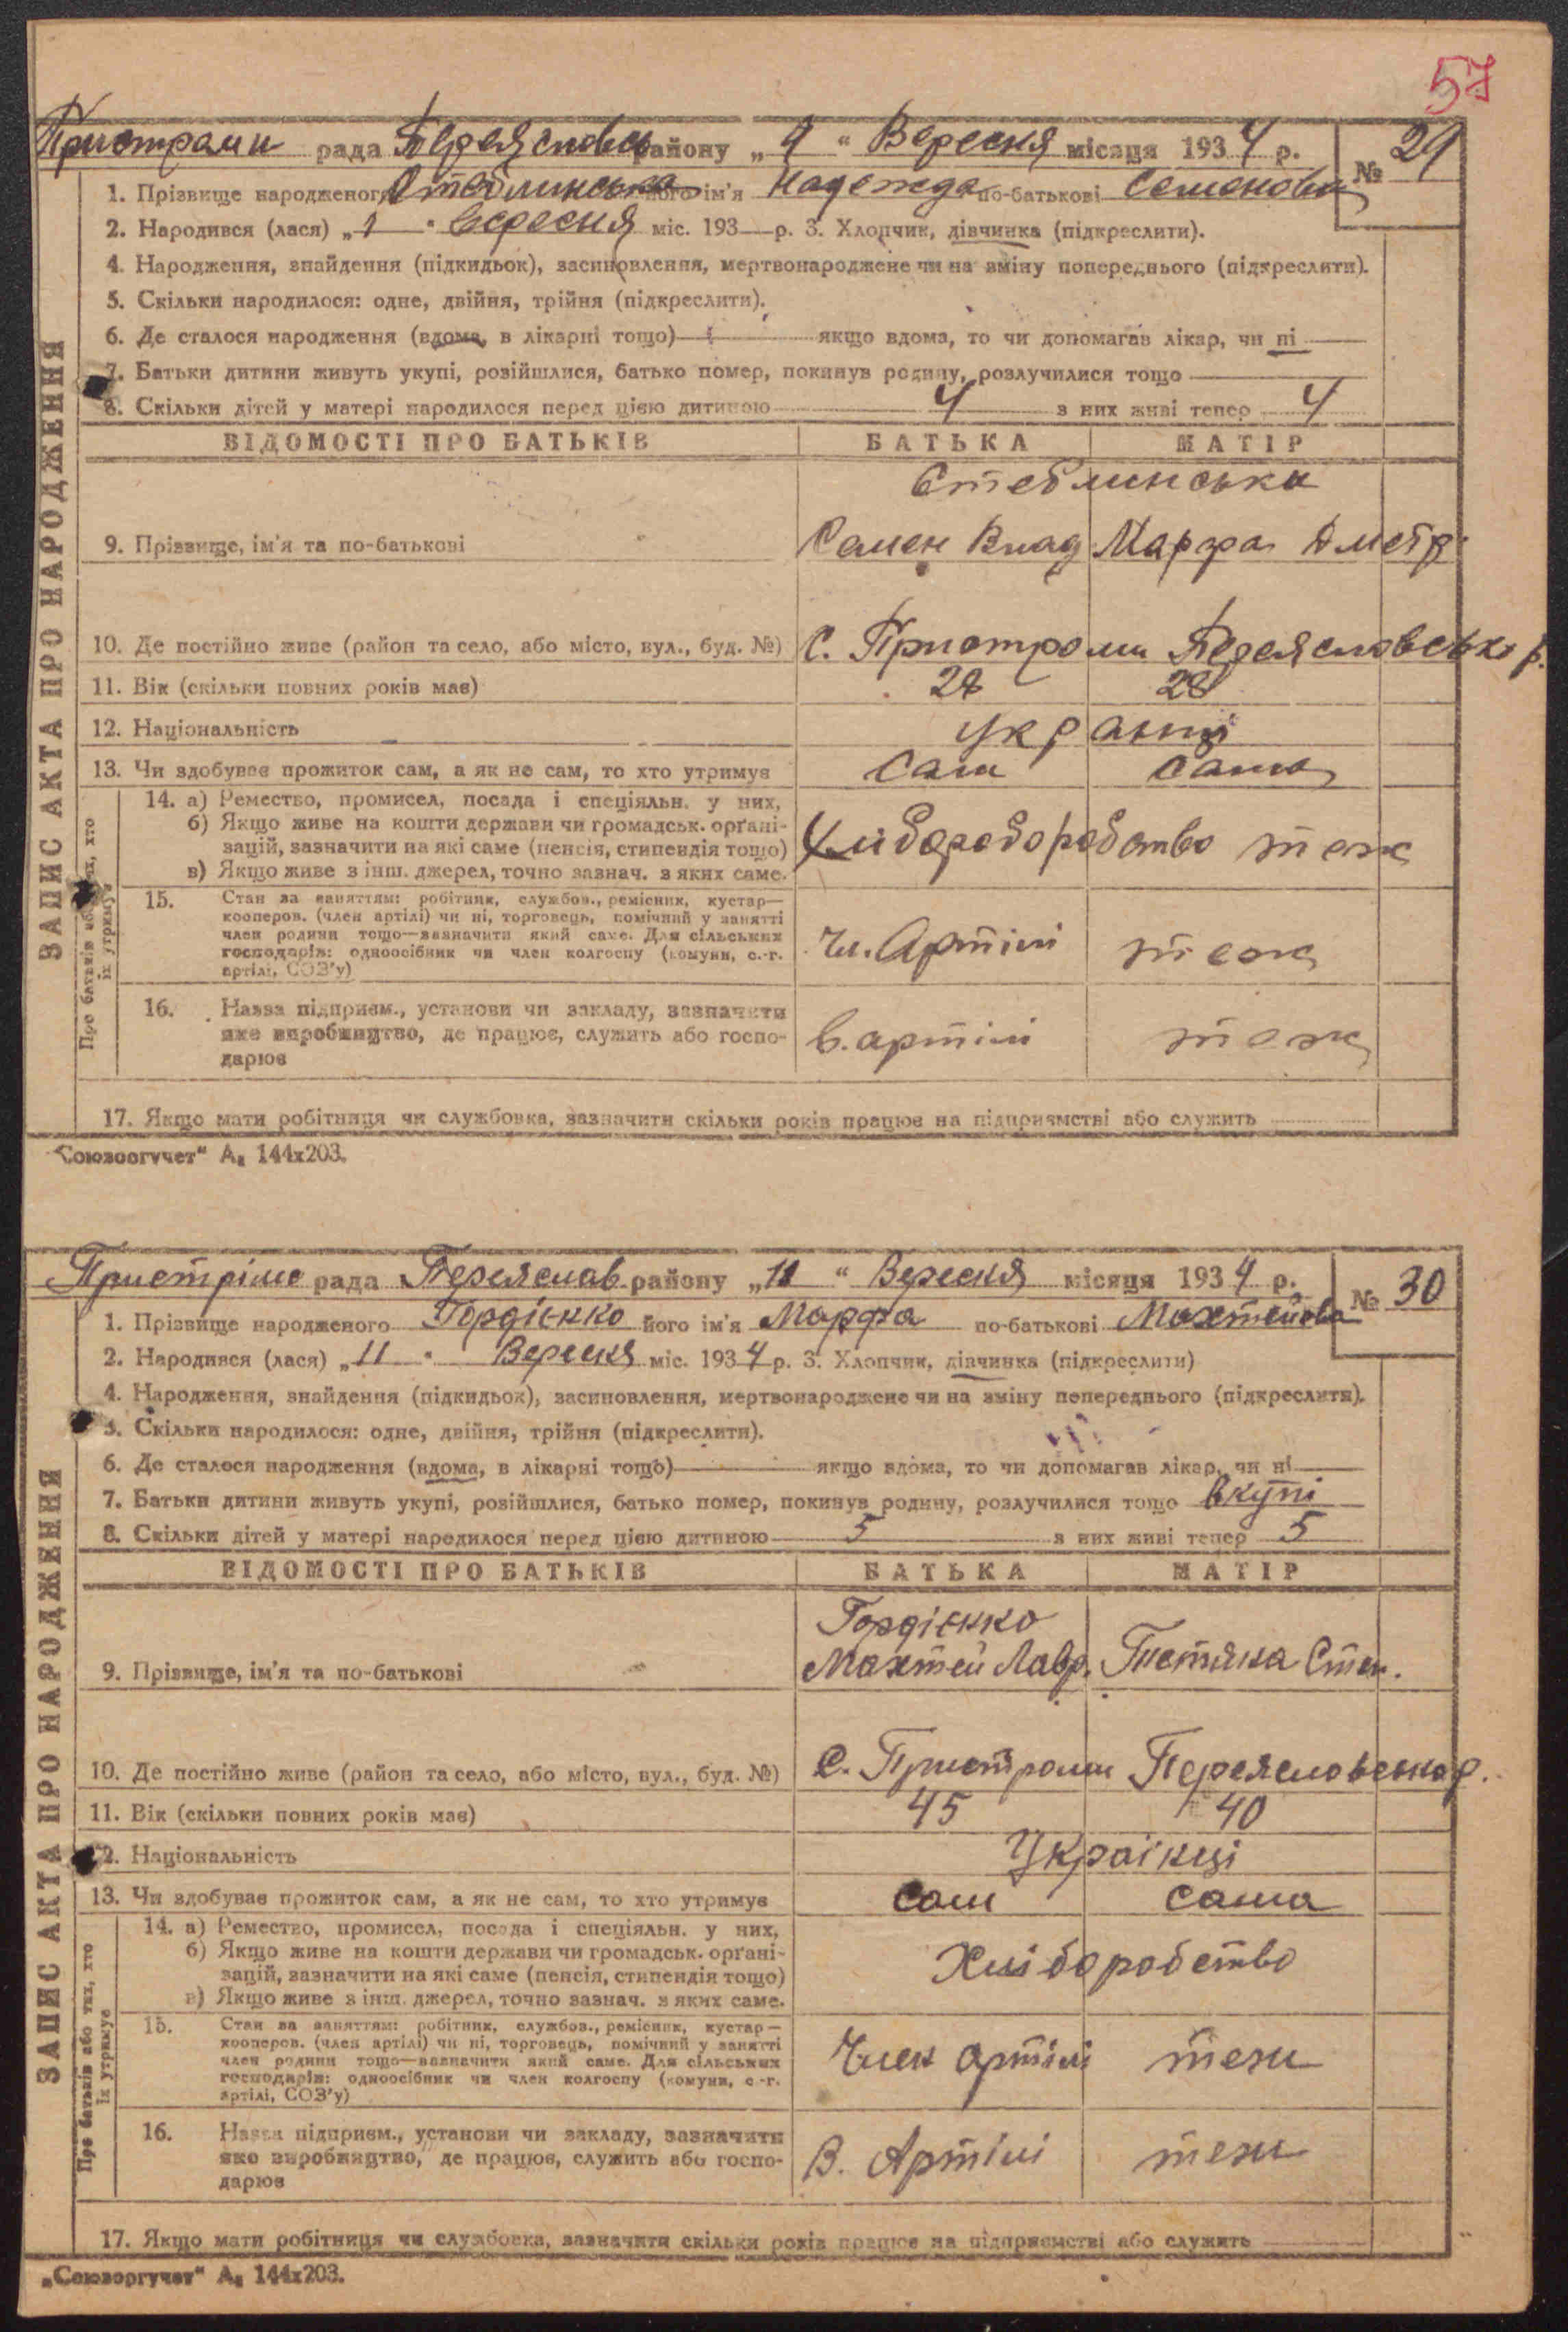 57
Пристроми рада Переяславськ району „ 9 “ Вересня місяця 1934 р. № 29
1. Прізвище народженого Стеблинська його ім'я Надежда по-батькові Семеновн
2. Народився (лася) „ 1 “ Вересня міс. 193 р. 3. Хлопчик, дівчинка (підкреслити).
4. Народження, знайдення (підкидьок), засиновлення, мертвонароджене чи на зміну попереднього (підкреслити).
5. Скільки народилося: одне, двійня, трійня (підкреслити).
6. Де сталося народження (вдома, в лікарні тощо) якщо вдома, то чи допомагав лікар, чи ні
7. Батьки дитини живуть укупі, розійшлися, батько помер, покинув родину, розлучилися тощо
8. Скільки дітей у матері народилося перед цією дитиною 4 з них живі тепер 4
ВІДОМОСТІ ПРО БАТЬКІВ БАТЬКА МАТІР
Стеблинські
9. Прізвище, ім'я та по-батькові Семен Влад Марфа Дметр.
10. Де постійно живе (район та село, або місто, вул., буд. №) С. Пристроми Переяславсько р.
11. Вік (скільки повних років має) 28 28
12. Національність Українці
13. Чи здобуває прожиток сам, а як не сам, то хто утримує Сам Сама
14. а) Ремество, промисел, посада і спеціяльн. у них,
б) Якщо живе на кошти держави чи громадськ. орґані-
зацій, зазначити на які саме (пенсія, стипендія тощо)
в) Якщо живе з інш. джерел, точно зазнач. з яких саме.
теж
15. Стан за заняттям: робітник, службов., ремісник, кустар—
кооперов. (член артілі) чи ні, торговець, помічний у занятті
член родини тощо—зазначити який саме. Для сільських
господарів: одноосібник чи член колгоспу (комуни, с.-г.
артілі, СОЗ'у)
Чл. Артілі теж
16. Назва підприєм., установи чи закладу, зазначити
яке виробництво, де працює, служить або госпо-
дарює
в. артілі теж
17. Якщо мати робітниця чи службовка, зазначити скільки років працює на підприємстві або служить
ЗАПИС АКТА ПРО НАРОДЖЕННЯ
Про батьків або тих, хто їх утримує
„Союзоргучет“ А₆ 144х203.
Пристріми рада Переяслав району „ 11 “ Вересня місяця 1934 р. № 30
1. Прізвище народженого Гордієнко його ім'я Марфа по-батькові Махтейова
2. Народився (лася) „ 11 “ Вересня міс. 1934 р. 3. Хлопчик, дівчинка (підкреслити)
4. Народження, знайдення (підкидьок), засиновлення, мертвонароджене чи на зміну попереднього (підкреслити).
5. Скільки народилося: одне, двійня, трійня (підкреслити).
6. Де сталося народження (вдома, в лікарні тощо) якщо вдома, то чи допомагав лікар, чи ні
7. Батьки дитини живуть укупі, розійшлися, батько помер, покинув родину, розлучилися тощо вкупі
8. Скільки дітей у матері народилося перед цією дитиною 5 з них живі тепер 5
ВІДОМОСТІ ПРО БАТЬКІВ БАТЬКА МАТІР
Гордієнко
9. Прізвище, ім'я та по-батькові Махтей Лавр. Тетяна Степ.
10. Де постійно живе (район та село, або місто, вул., буд. №) С. Пристроми Переясловсько р.
11. Вік (скільки повних років має) 45 40
12. Національність Українці
13. Чи здобуває прожиток сам, а як не сам, то хто утримує сам сама
14. а) Ремество, промисел, посада і спеціяльн. у них,
б) Якщо живе на кошти держави чи громадськ. орґані-
зацій, зазначити на які саме (пенсія, стипендія тощо)
в) Якщо живе з інш. джерел, точно зазнач. з яких саме.
Хліборобство
15. Стан за заняттям: робітник, службов., ремісник, кустар—
кооперов. (член артілі) чи ні, торговець, помічний у занятті
член родини тощо—зазначити який саме. Для сільських
господарів: одноосібник чи член колгоспу (комуни, с.-г.
артілі, СОЗ'у)
Член артілі теж
16. Назва підприєм., установи чи закладу, зазначити
яке виробництво, де працює, служить або госпо-
дарює
В. Артілі теж
17. Якщо мати робітниця чи службовка, зазначити скільки років працює на підприємстві або служить
ЗАПИС АКТА ПРО НАРОДЖЕННЯ
Про батьків або тих, хто їх утримує
„Союзоргучет“ А₆ 144х203.